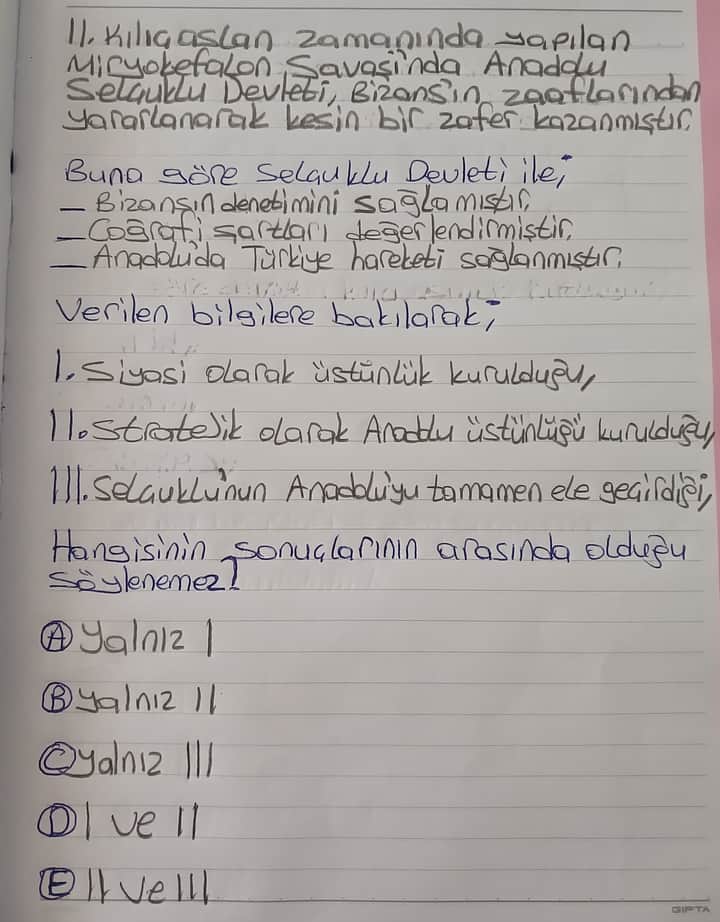 II. Kılıçaslan zamanında yapılan
Miryokefalon Savaşı'nda Anadolu
Selçuklu Devleti, Bizans'ın zaaflarından
yararlanarak kesin bir zafer kazanmıştır.
Buna göre Selçuklu Devleti ile;
— Bizansın denetimini sağlamıştır,
— Coğrafi şartları değerlendirmiştir,
— Anadolu'da Türkiye hareketi sağlanmıştır.
Verilen bilgilere bakılarak;
I. Siyasi olarak üstünlük kurulduğu,
II. Stratejik olarak Anadolu üstünlüğü kurulduğu,
III. Selçuklu'nun Anadolu'yu tamamen ele geçirdiği,
Hangisinin sonuçlarının arasında olduğu
söylenemez?
A Yalnız I
B Yalnız II
C Yalnız III
D I ve II
E II ve III
GIPTA